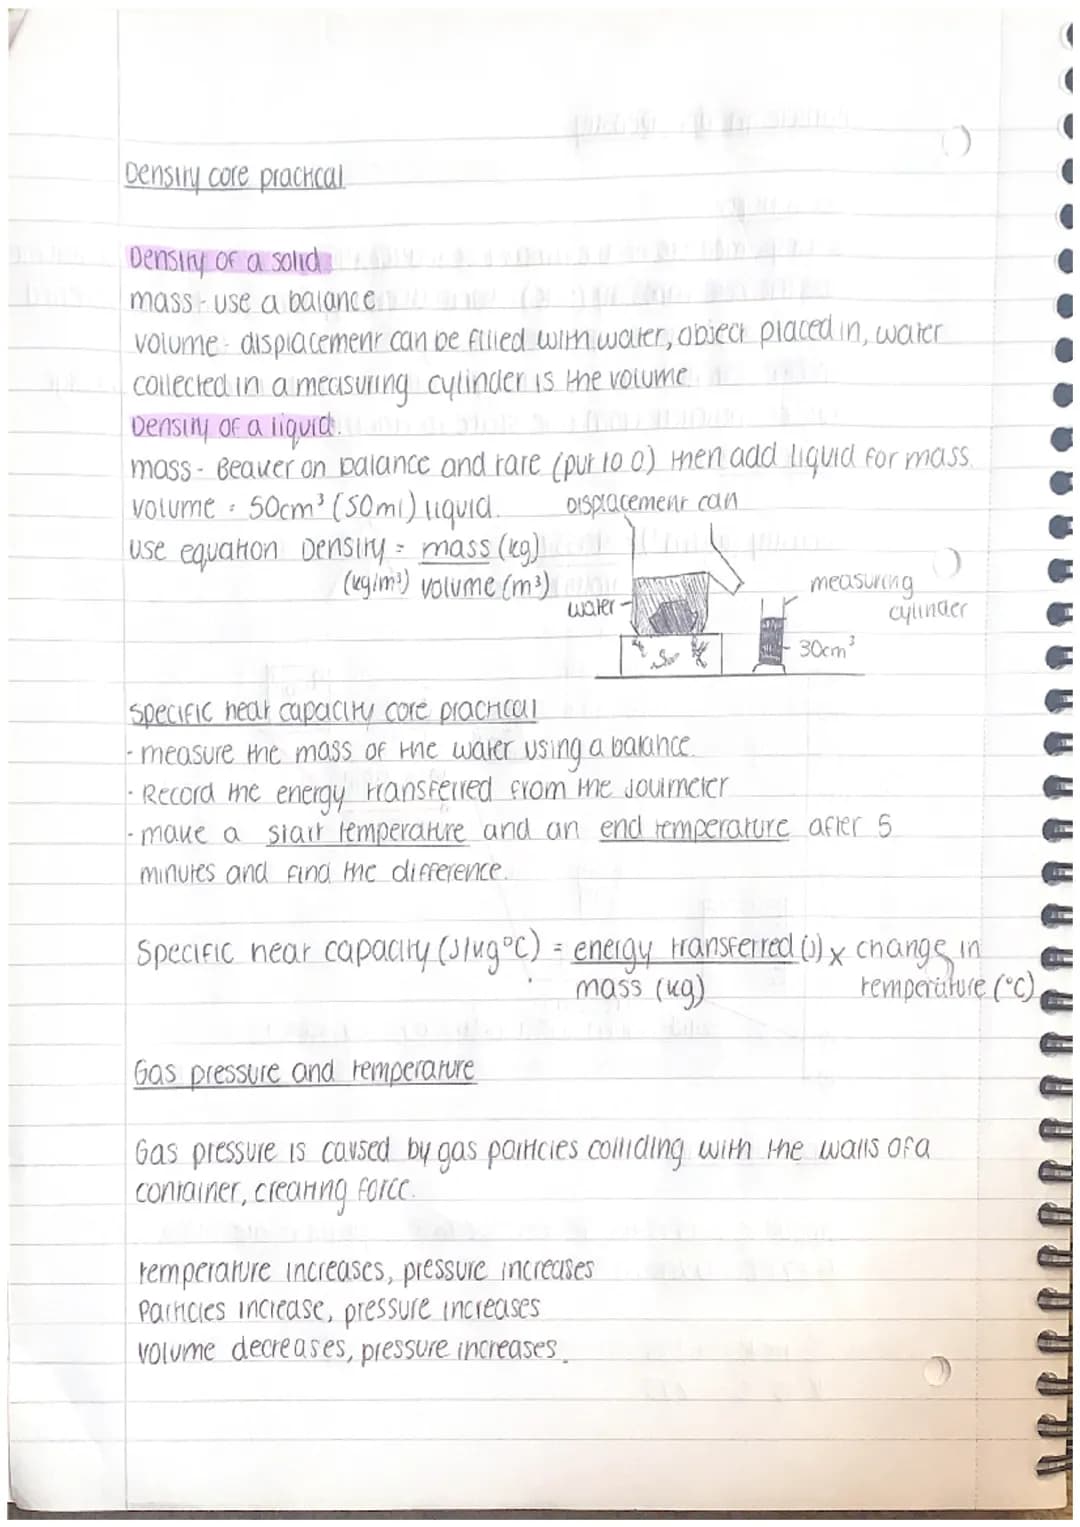 Density core practical
Density of a solid
mass - use a balance
volume - displacement can be filled with water, object placed in, water
collected in a measuring cylinder is the volume
Density of a liquid.
mass - Beaker on balance and tare (put to 0) then add liquid for mass.
volume = 50cm³ (50ml) liquid.
displacement can
use equation Density = mass (kg)
(kg/m³) volume (m³)
water
measuring
cylinder
30cm³
specific heat capacity core practical
- measure the mass of the water using a balance.
- Record the energy transferred from the joulmeter
- make a start temperature and an end temperature after 5
minutes and find the difference.
Specific heat capacity (J/kg°C) = energy transferred (j) x change in
mass (kg) temperature (°C)
Gas pressure and temperature
Gas pressure is caused by gas particles colliding with the walls of a
container, creating force.
temperature increases, pressure increases
Particles increase, pressure increases
volume decreases, pressure increases.